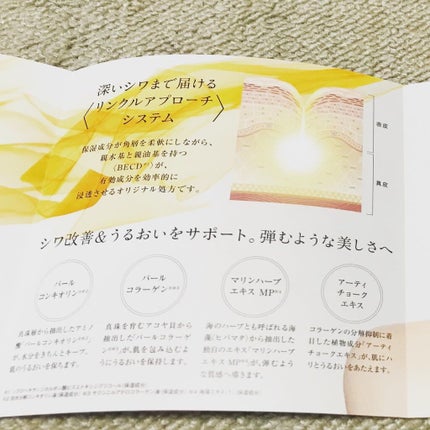 深いシワまで届ける
〈リンクルアプローチ
システム〉
保湿成分が角層を柔軟にしながら、
親水基と親油基を持つ
〈BECD※1〉が、
有効成分を効率的に
浸透させるオリジナル処方です。
表皮
真皮
シワ改善&うるおいをサポート。弾むような美しさへ
パール
コンキオリン※2
真珠層から抽出したアミノ
酸“パールコンキオリン※2”
が、水分をきちんとキープ。
肌のうるおいを保ちます。
パール
コラーゲン※3
真珠を育むアコヤ貝から
抽出したパールコラーゲ
ン※3が、肌を包み込むよ
うにうるおいを保持します。
マリンハーブ
エキス MP※4
海のハーブとも呼ばれる海
藻(ヒバマタ)から抽出した
独自のエキス“マリンハーブ
エキス MP※4”が、弾むよう
な質感へ導きます。
アーティ
チョーク
エキス
コラーゲンの分解抑制に着
目した植物成分“アーティ
チョークエキス”が、肌にハ
リとうるおいをあたえます。